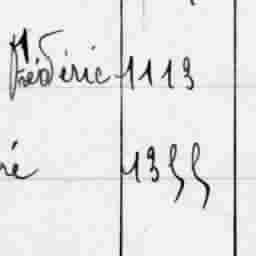 Frédéric 1113
ré 1355